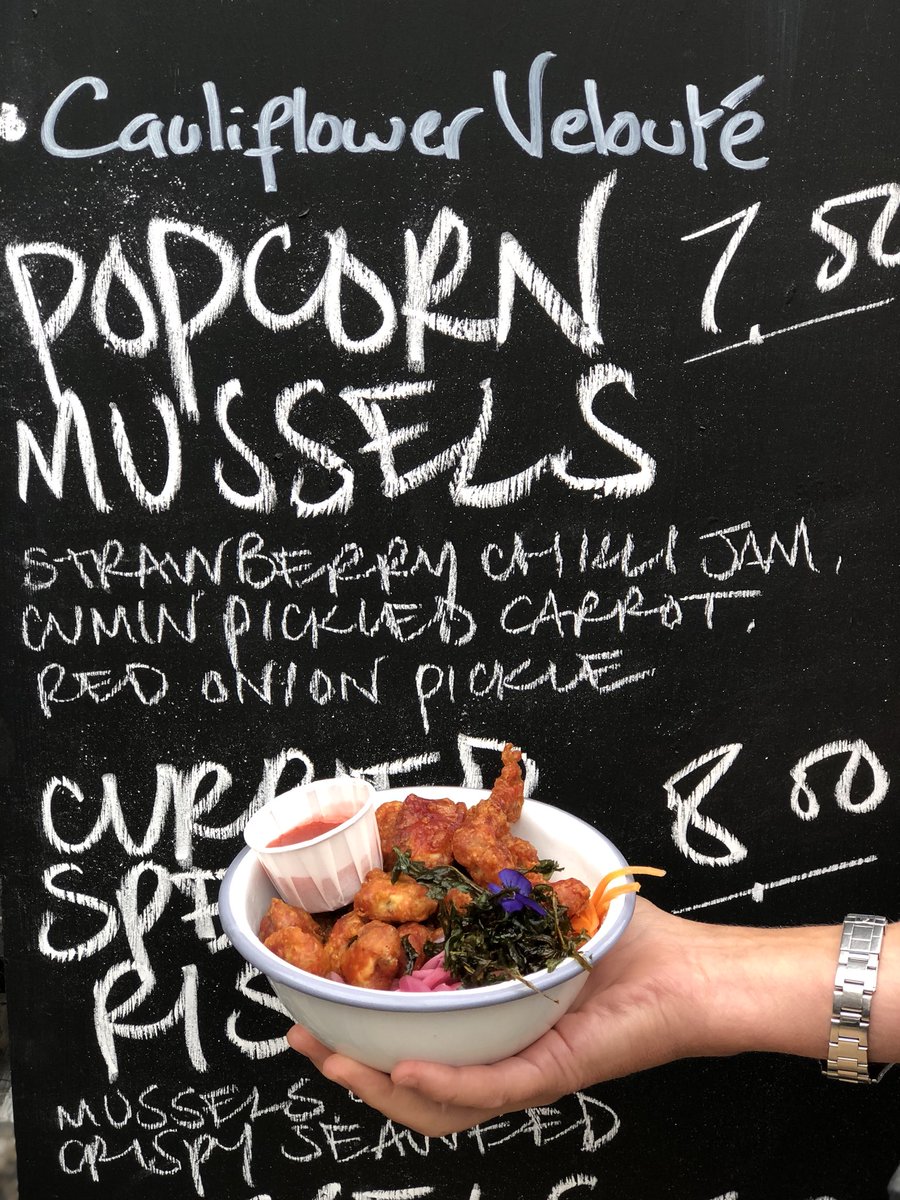 Cauliflower Velouté
POPCORN 7.50
MUSSELS
STRAWBERRY CHILLI JAM,
CUMIN PICKLED CARROT,
RED ONION PICKLE
CURRIED 8.00
SPE
RIS
MUSSELS,
CRISPY SEAWEED